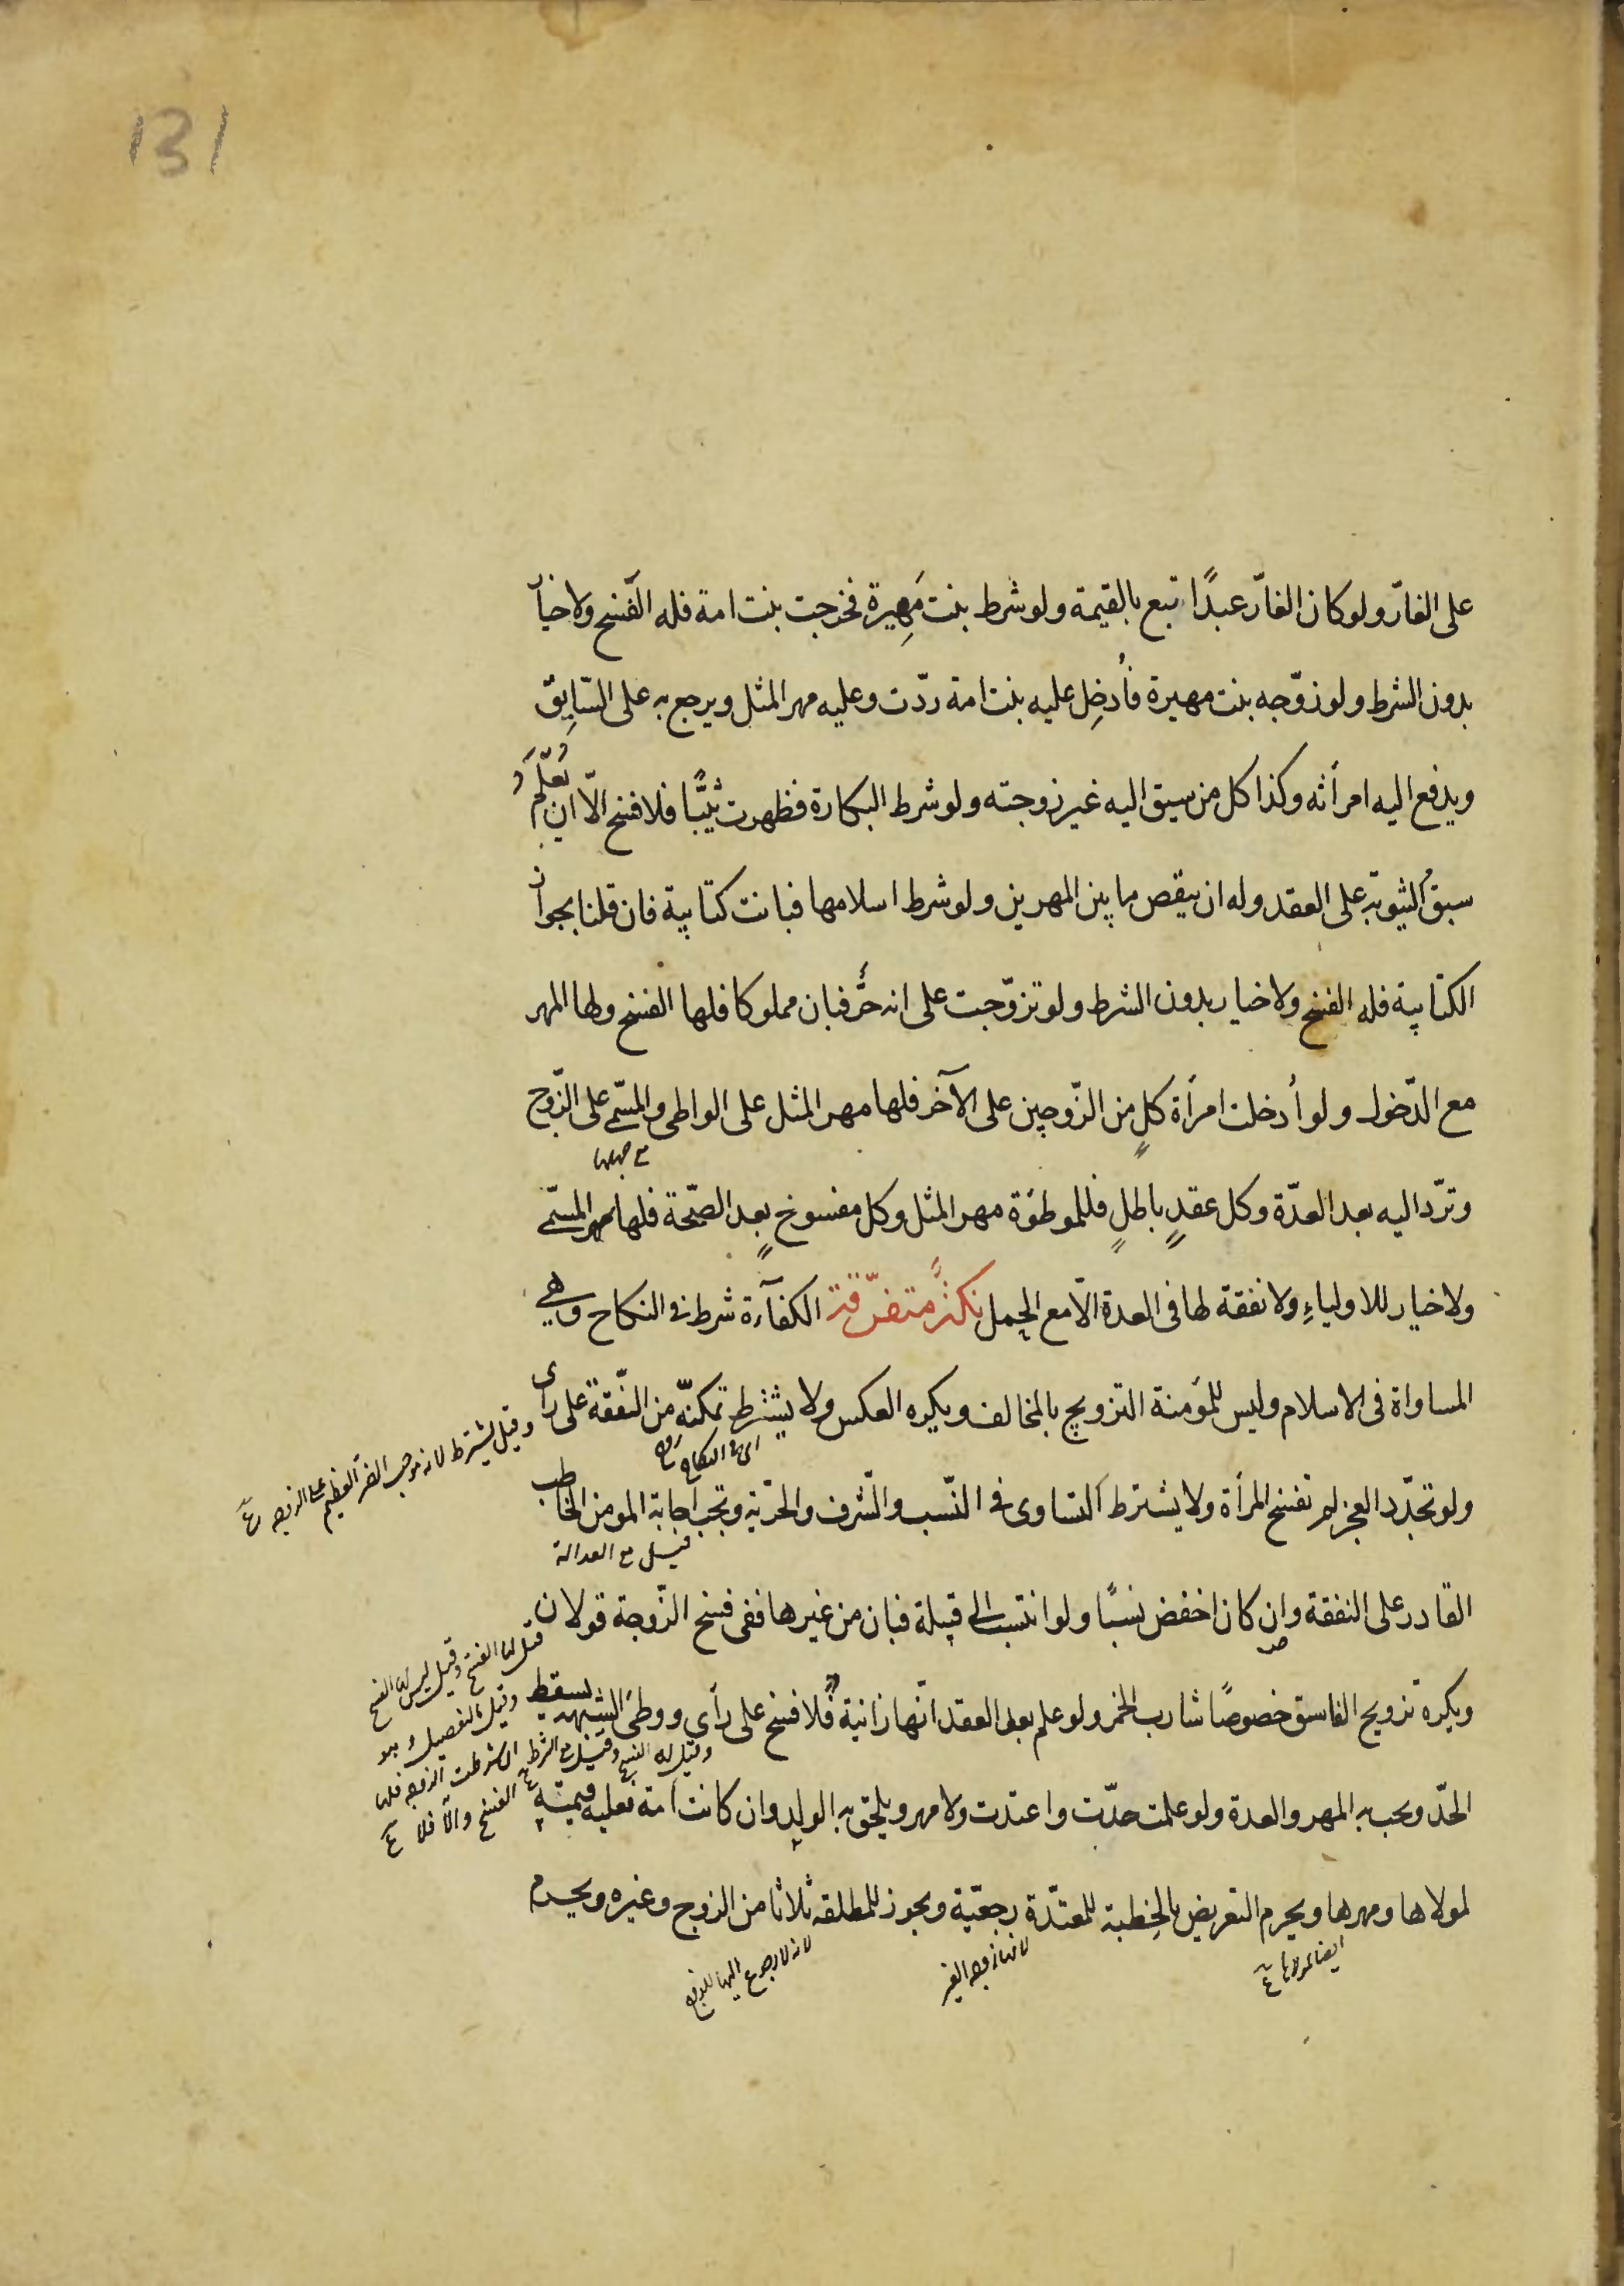 131
على الغارّ ولو كان الغارّ عبدًا تبع بالقيمة ولو شرط بنت مَهِيرة فخرجت بنت امة فله الفسخ ولا خيار
بدون الشرط ولو زوّجه بنت مهيرة فأُدخِل عليه بنت امة ردّت وعليه مهر المثل ويرجع به على السّايِق
ويدفع اليه امرأته وكذا كل من سيق اليه غير زوجته ولو شرط البكارة فظهرت ثيّبًا فلا فسخ الّا ان يُعلَم
سبقُ الثيوبة على العقد وله ان ينقص ما بين المهرين ولو شرط اسلامها فبانت كتابية فان قلنا بجواز
الكتابية فله الفسخ ولا خيار بدون الشرط ولو تزوّجت على انه حُرّ فبان مملوكا فلها الفسخ ولها المهر
مع الدّخول ولو أدخلت امرأة كلٍ من الزّوجين على الآخر فلها مهر المثل على الواطى والمسمّى على الزّوج
مع جهلها
وتردّ اليه بعد العدّة وكل عقدٍ باطلٍ فللموطؤة مهر المثل وكل مفسوخ بعد الصحّة فلها مهر المسمّى
ولا خيار للاولياءِ ولا نفقة لها فى العدة الّا مع الحمل نكتٌ متفرّقة الكفآءة شرط فى النكاح وهى
المساواة فى الاسلام وليس للمؤمنة التزويج بالمخالف ويكره العكس ولا يشترط تمكنّه من النّفقة على رأى
وقيل يشترط لانه موجب الضرر العظيم على الزوجه ع
اى فى النكاح
ولو تجدّد العجز لم تفسخ المرأة ولا يشترط التساوى فى النّسب والشّرف والحرّية وتجب اجابة المومن الخاطب
قيل مع العدالة
القادر على النفقة وان كان اخفض نسبًا ولو انتسب الى قبيلة فبان من غيرها ففى فسخ الزّوجة قولان
قيل لها الفسخ وقيل ليس لها الفسخ
وقيل بالتفصيل وهو
ان شرطت الزوجه فلها
الفسخ والّا فلا ع
ويكره تزويج الفاسق خصوصًا شارب الخمر ولو علم بعد العقد انّها زانية فلا فسخ على رأى ووطئ الشبهة يسقط
وقيل له الفسخ وقيل مع الشرط
الحدّ ويجب به المهر والعدة ولو علمت حدّت واعتدت ولا مهر ويلحق به الولد وان كانت امة فعليه قيمته
لمولاها ومهرها ويحرم التعريض بالخِطبة للمعتدّة رجعيّة ويجوز للمطلقه ثلاثا من الزوج وغيره ويحرم
ايضا لمولاها ع
لانها زوجه الغير
لانه لا رجوع اليها للزوج